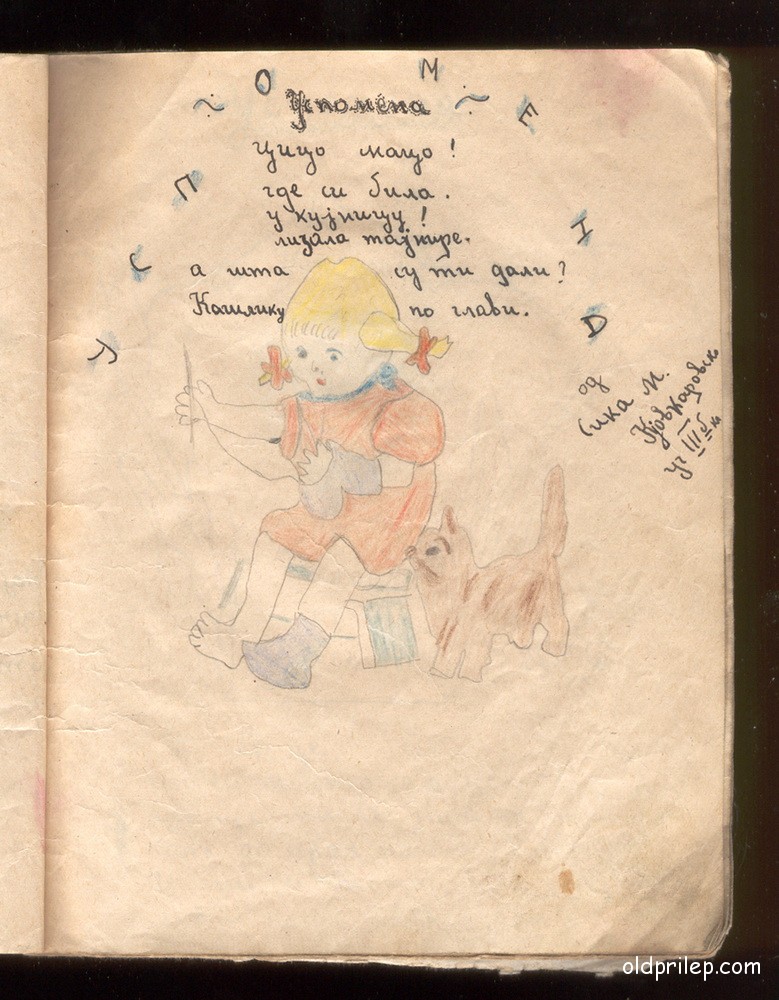 У С П О М Е Н А
~ Успомена ~
Цицо мацо!
где си била.
у кујницу!
лизала тајнире.
а шта су ти дали?
Кашику по глави.
од
Сика М.
уч III
oldprilep.com